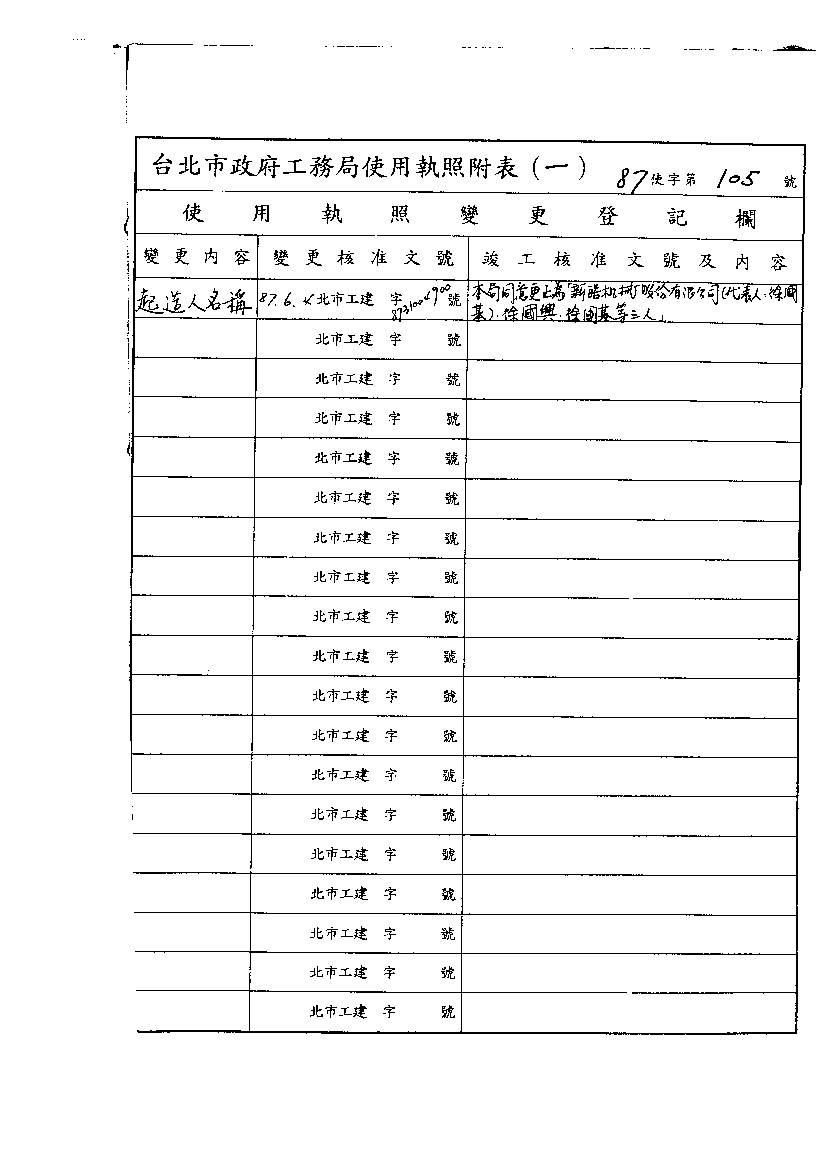 台北市政府工務局使用執照附表(一) 87使字第 105 號
使用執照變更登記欄
變更內容 變更核准文號 竣工核准文號及內容
起造人名稱 87.6.4 北市工建 字 號 本局同意更正為「新 机械股份有限公司(代表人:徐國
).徐國興.徐國 等三人」
北市工建 字 號
北市工建 字 號
北市工建 字 號
北市工建 字 號
北市工建 字 號
北市工建 字 號
北市工建 字 號
北市工建 字 號
北市工建 字 號
北市工建 字 號
北市工建 字 號
北市工建 字 號
北市工建 字 號
北市工建 字 號
北市工建 字 號
北市工建 字 號
北市工建 字 號
北市工建 字 號